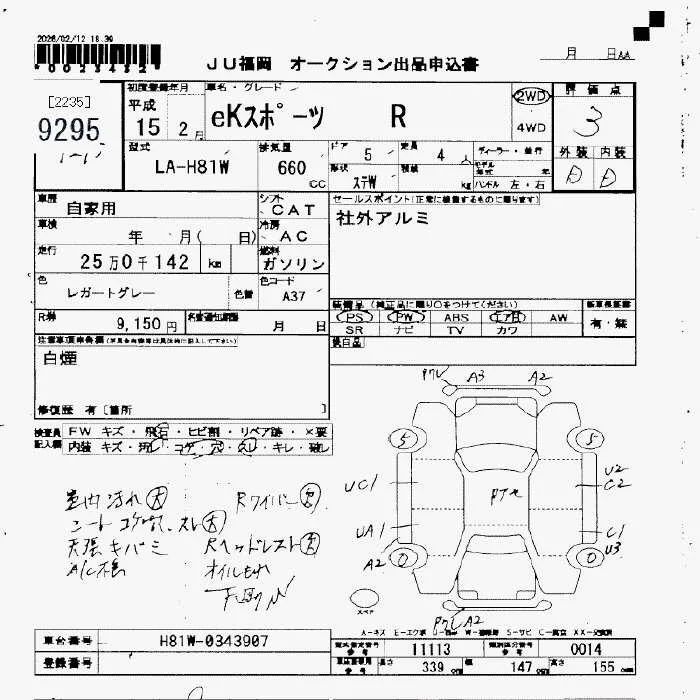 2026/02/12 18:39
*00234321*
JU福岡 オークション出品申込書
月 日 AA
[2235]
9295
初度登録年月
平成
15 2月
車名・グレード
eKスポーツ R
2WD
4WD
評価点
3
型式
LA-H81W
排気量
660
CC
ドア
5
定員
4 人
形状
ステW
積載
kg
ディーラー・並行
モデル
年式 年
ハンドル 左・右
外装 内装
D D
車歴
自家用
シフト
CAT
車検
年 月( 日)
冷房
AC
走行
25万0千142 km
燃料
ガソリン
色
レガートグレー
色替
色コード
A37
R券
9,150円
名義変更期限
月 日
セールスポイント(正常に機能するものに限ります)
社外アルミ
装備品 (純正品に限り○をつけてください)
PS PW ABS エアB AW
SR ナビ TV カワ
新車保証書
有・無
注意事項申告欄
白煙
修復歴 有 [箇所 ]
検査員
記入欄
FW キズ・飛石・ヒビ割・リペア跡・×要
内装 キズ・汚レ・コゲ・穴・スレ・キレ・破レ
室内汚れ 大
シートコゲ穴、スレ 大
天張キバミ
A/C不良
Rワイパー欠
Rヘッドレスト欠
オイルもれ
下回りサビ
A3 A2
5 5
UC1
U2
C2
UA1
C1
U3
A2
0 0
スペア
A2
A-キズ E-エクボ U-凹 W-補修跡 S-サビ C-腐食 XX-交換済
車台番号
H81W-0343907
登録番号
型式指定番号
11113
類別区分番号
0014
長さ
339 cm
幅
147 cm
高さ
155 cm